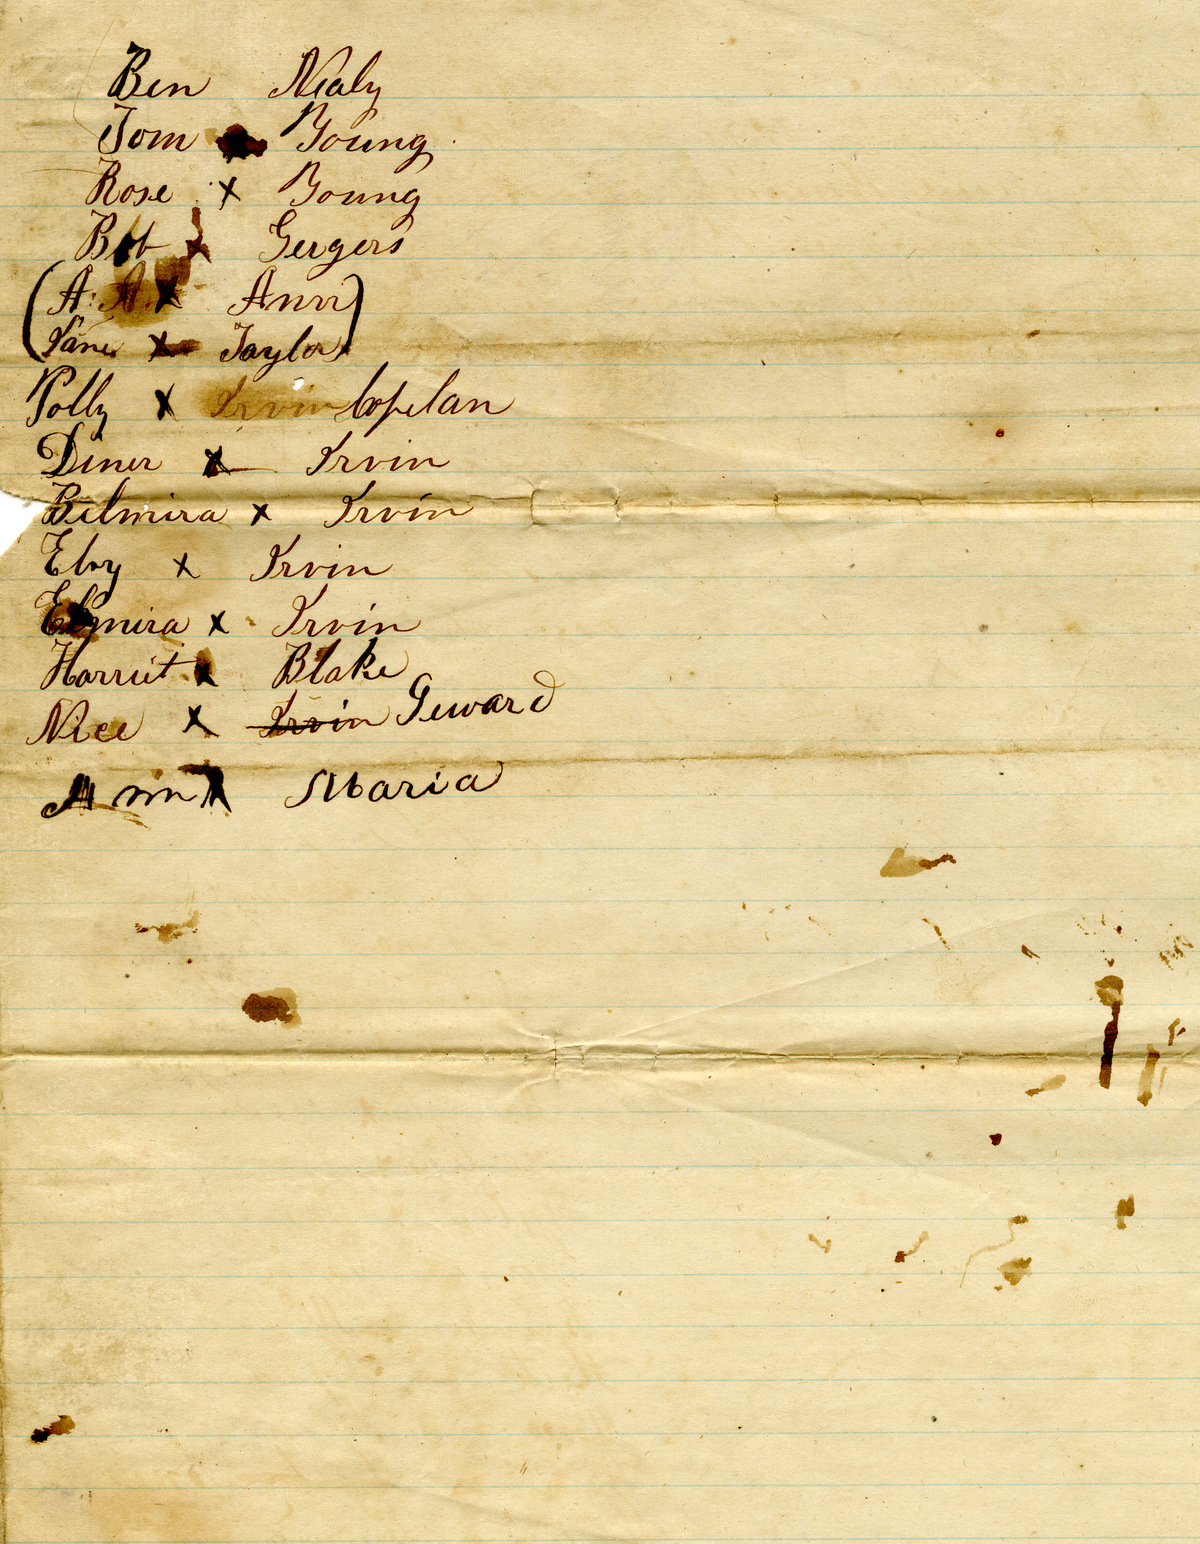 Ben Nealy
Tom Young
Rose x Young
Bob x Gergers
(A. A. x Ann)
(Jane x Taylor)
Polly x Irvin Copelan
Diner x Irvin
Belmira x Irvin
Elvy x Irvin
Elmira x Irvin
Harriet x Blake
Nice x Irvin Seward
Ann x Maria